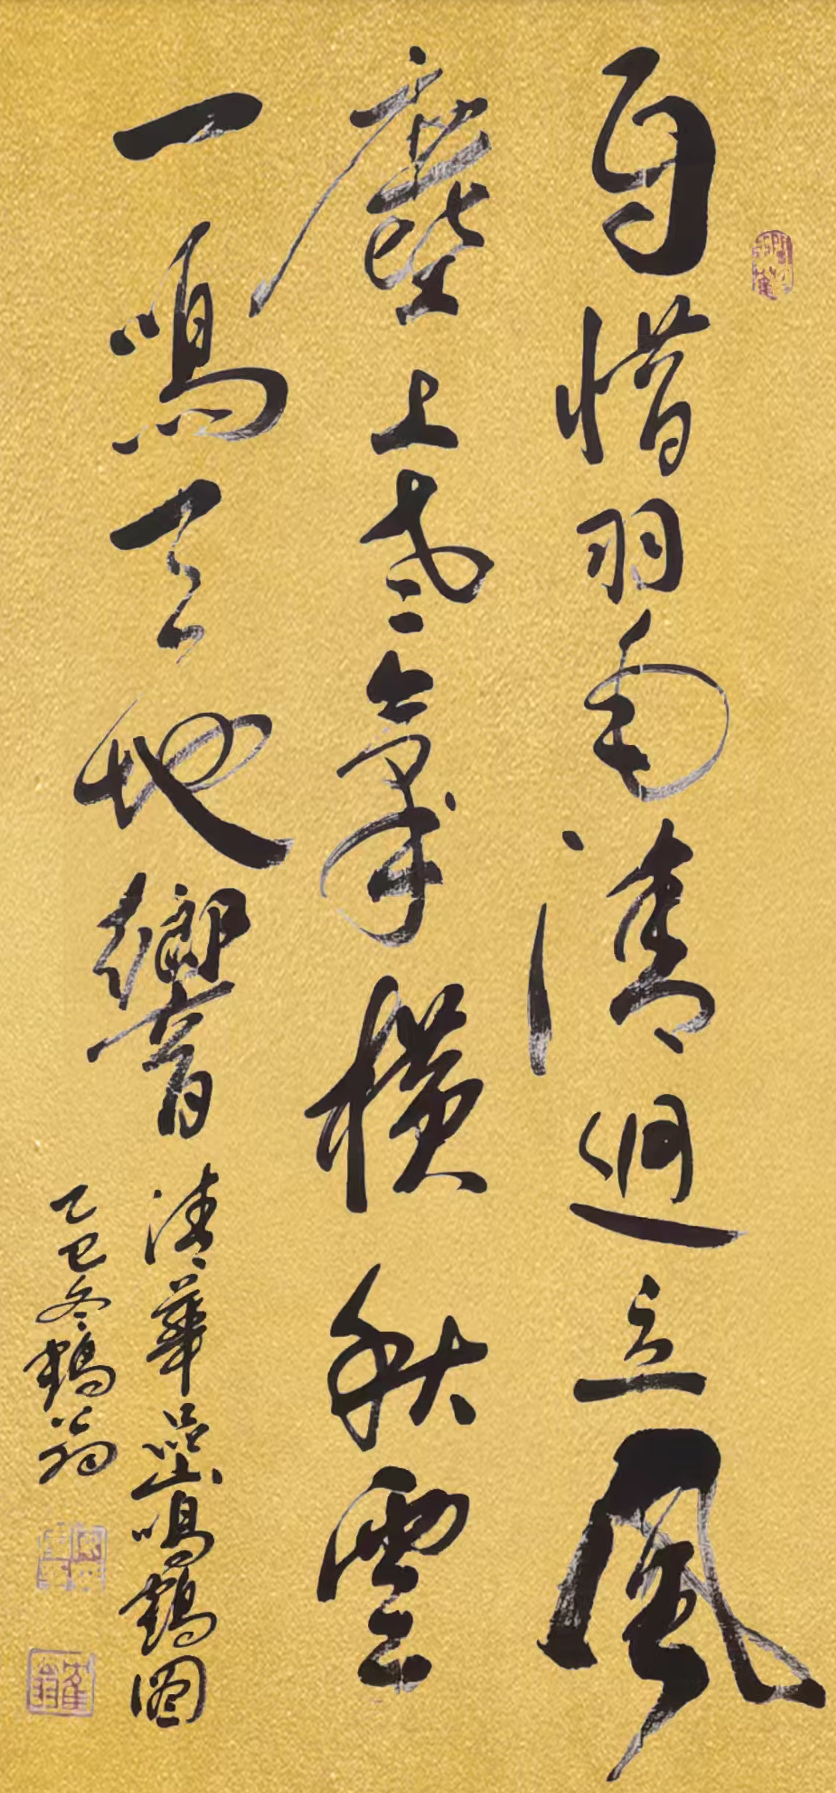 自惜羽毛清迥立風
塵上老氣橫秋雲
一鳴天地響
清華嵒鳴鶴圖
乙巳冬鶴翁